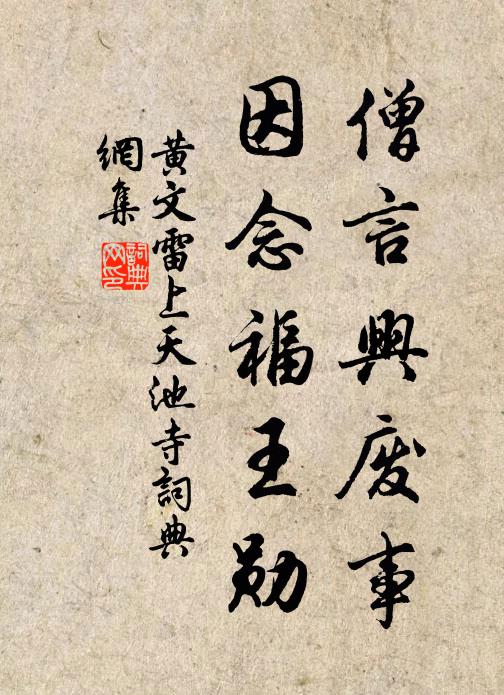 僧言興废事
因念福王勋
黄文雷上天池寺詞典
網集
詞典
网印